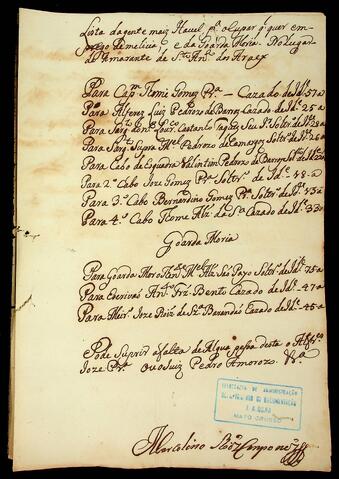 Lista da gente mais havel pª ocupar qª quer em-
prego de melicia e da Goarda Moria. No lugar
de Amarante de Stª Anª do
Para Capᵐ Tome Gomez Prª — Cazado de Idᵉ 57 a
Para Alferez Luiz Pedrozo de Barros Cazado de Idᵉ 25 a
Para Sargᵗᵒ Lourᶜᵒ Caetano Solᵗʳᵒ de Idᵉ 28 a
Para Sargᵗᵒ Supra Mᵉˡ Pedrozo de Camargos Solᵗʳᵒ de Idᵉ 26 a
Para Cabo de Esquadra Valintim Pedrozo de Barros Solᵗʳᵒ de Idᵉ
Para 2º Cabo Joze Gomez Prª Solᵗʳᵒ de Idᵉ 48 a
Para 3º Cabo Bernardino Gomez Prª Solᵗʳᵒ de Idᵉ 43 a
Para 4º Cabo Tome Alz' de Sª Cazado de Idᵉ 33 a
Goarda Moria
Para Goarda Mor Mᵉˡ Alz' Payo Solᵗʳᵒ de Idᵉ 75 a
Para Escrivão Anᵗᵒ Frz' Bento Cazado de Idᵉ 47 a
Para Joze Roiz' de Sz' Cazado de Idᵉ 45 a
Pode Suprir a falta de Algua pesoa desta o Alferes
Joze Prª Ou o Luiz Pedro Amorozo.
SECRETARIA DE ADMINISTRAÇÃO
DEPARTAMENTO DE DOCUMENTAÇÃO
E ARQUIVO
MATO GROSSO
Marcelino Roiz' Camponez